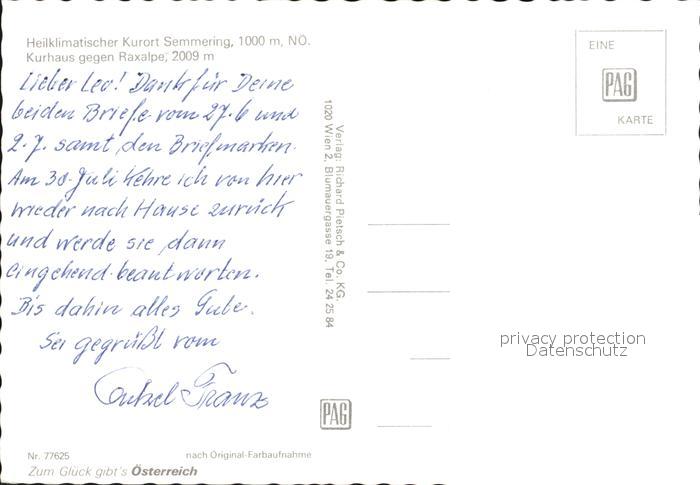 Heilklimatischer Kurort Semmering, 1000 m, NÖ.
Kurhaus gegen Raxalpe, 2009 m
Lieber Leo! Dank für Deine
beiden Briefe vom 27.6 und
2.7. samt den Briefmarken.
Am 30. Juli kehre ich von hier
wieder nach Hause zurück
und werde sie dann
eingehend beantworten.
Bis dahin alles Gute.
Sei gegrüßt vom
Onkel Franz
Nr. 77625
nach Original-Farbaufnahme
Zum Glück gibt's Österreich
Verlag: Richard Pietsch & Co. KG.
1020 Wien 2, Blumauergasse 19, Tel. 24 25 84
PAG
EINE
PAG
KARTE
privacy protection
Datenschutz